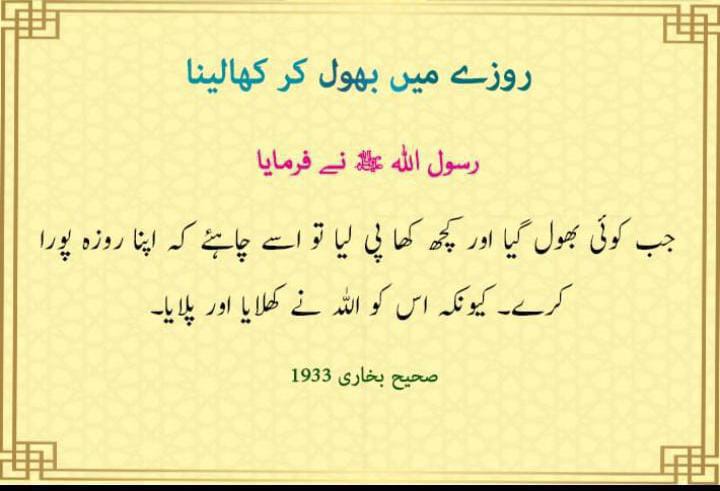 روزے میں بھول کر کھالینا
رسول اللہ ﷺ نے فرمایا
جب کوئی بھول گیا اور کچھ کھا پی لیا تو اسے چاہئے کہ اپنا روزہ پورا
کرے۔ کیونکہ اس کو اللہ نے کھلایا اور پلایا۔
صحیح بخاری 1933